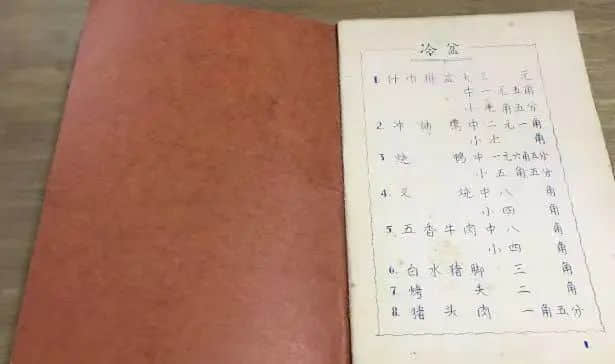 冷盆
1 什市拼盆大三 元
中一元五角
小 角五分
2. 冲 鹦中二元一角
小七 角
3 烧 鸭中一元六角五分
小五角五分
4. 叉 烧中八 角
小四 角
5. 五香牛肉中八 角
小四 角
6. 白水猪脚 三 角
7. 烤 夫 二 角
8. 猪头肉 一角五分
1